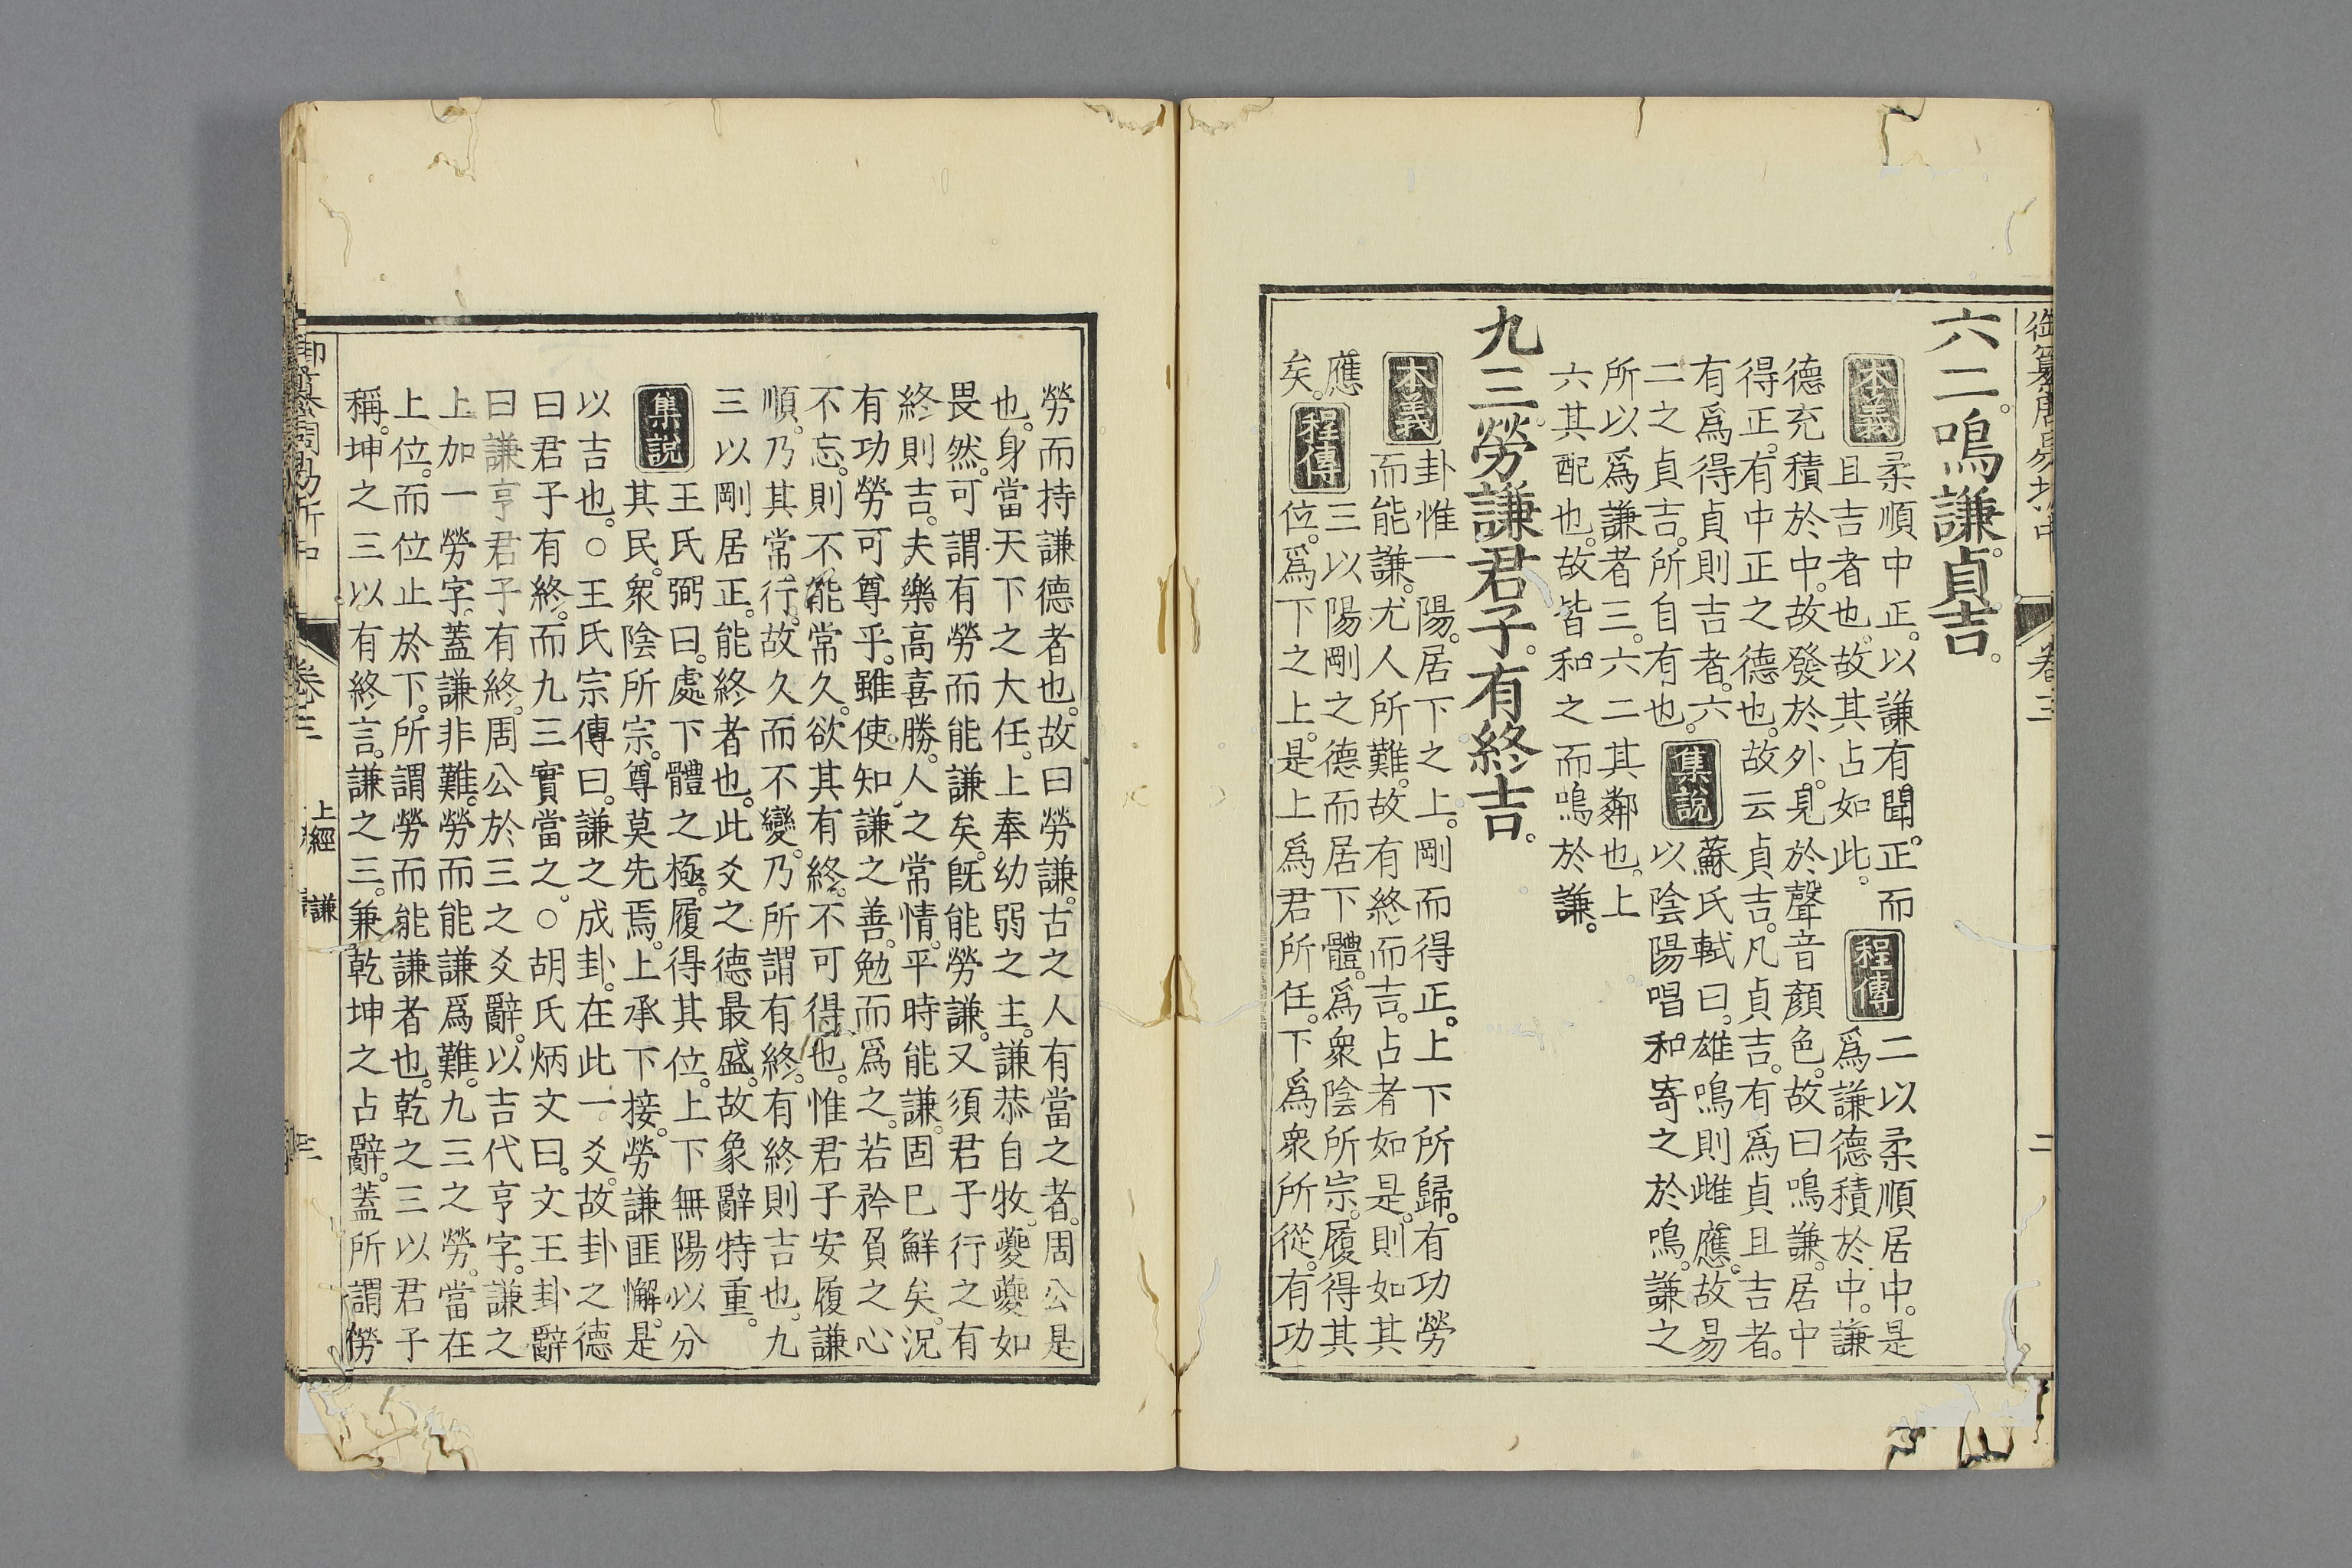 御纂周易折中
卷三
二
六二。鳴謙。貞吉。
本義
柔順中正。以謙有聞。正而
且吉者也。故其占如此。
程傳
二以柔順居中。是
爲謙德積於中。謙
德充積於中。故發於外。見於聲音顏色。故曰鳴謙。居中
得正。有中正之德也。故云貞吉。凡貞吉。有爲貞且吉者。
有爲得貞則吉者。六
二之貞吉。所自有也。
集說
蘇氏軾曰。雄鳴則雌應。故易
以陰陽唱和。寄之於鳴。謙之
所以爲謙者三。六二其鄰也。上
六其配也。故皆和之而鳴於謙。
九三。勞謙君子。有終吉。
本義
卦惟一陽。居下之上。剛而得正。上下所歸。有功勞
而能謙。尤人所難。故有終而吉。占者如是。則如其
應
矣。
程傳
三以陽剛之德而居下體。爲衆陰所宗。履得其
位。爲下之上。是上爲君所任。下爲衆所從。有功
勞而持謙德者也。故曰勞謙。古之人有當之者。周公是
也。身當天下之大任。上奉幼弱之主。謙恭自牧。夔夔如
畏然。可謂有勞而能謙矣。旣能勞謙。又須君子行之有
終則吉。夫樂高喜勝。人之常情。平時能謙。固已鮮矣。況
有功勞可尊乎。雖使知謙之善。勉而爲之。若矜負之心
不忘。則不能常久。欲其有終。不可得也。惟君子安履謙
順。乃其常行。故久而不變。乃所謂有終。有終則吉也。九
三以剛居正。能終者也。此爻之德最盛。故象辭特重。
集說
王氏弼曰。處下體之極。履得其位。上下無陽以分
其民。衆陰所宗。尊莫先焉。上承下接。勞謙匪懈。是
以吉也。○王氏宗傳曰。謙之成卦。在此一爻。故卦之德
曰君子有終。而九三實當之。○胡氏炳文曰。文王卦辭
曰謙亨君子有終。周公於三之爻辭。以吉代亨字。謙之
上加一勞字。蓋謙非難。勞而能謙爲難。九三之勞。當在
上位。而位止於下。所謂勞而能謙者也。乾之三以君子
稱。坤之三以有終言。謙之三。兼乾坤之占辭。蓋所謂勞
御纂周易折中
卷三
上經
謙
三